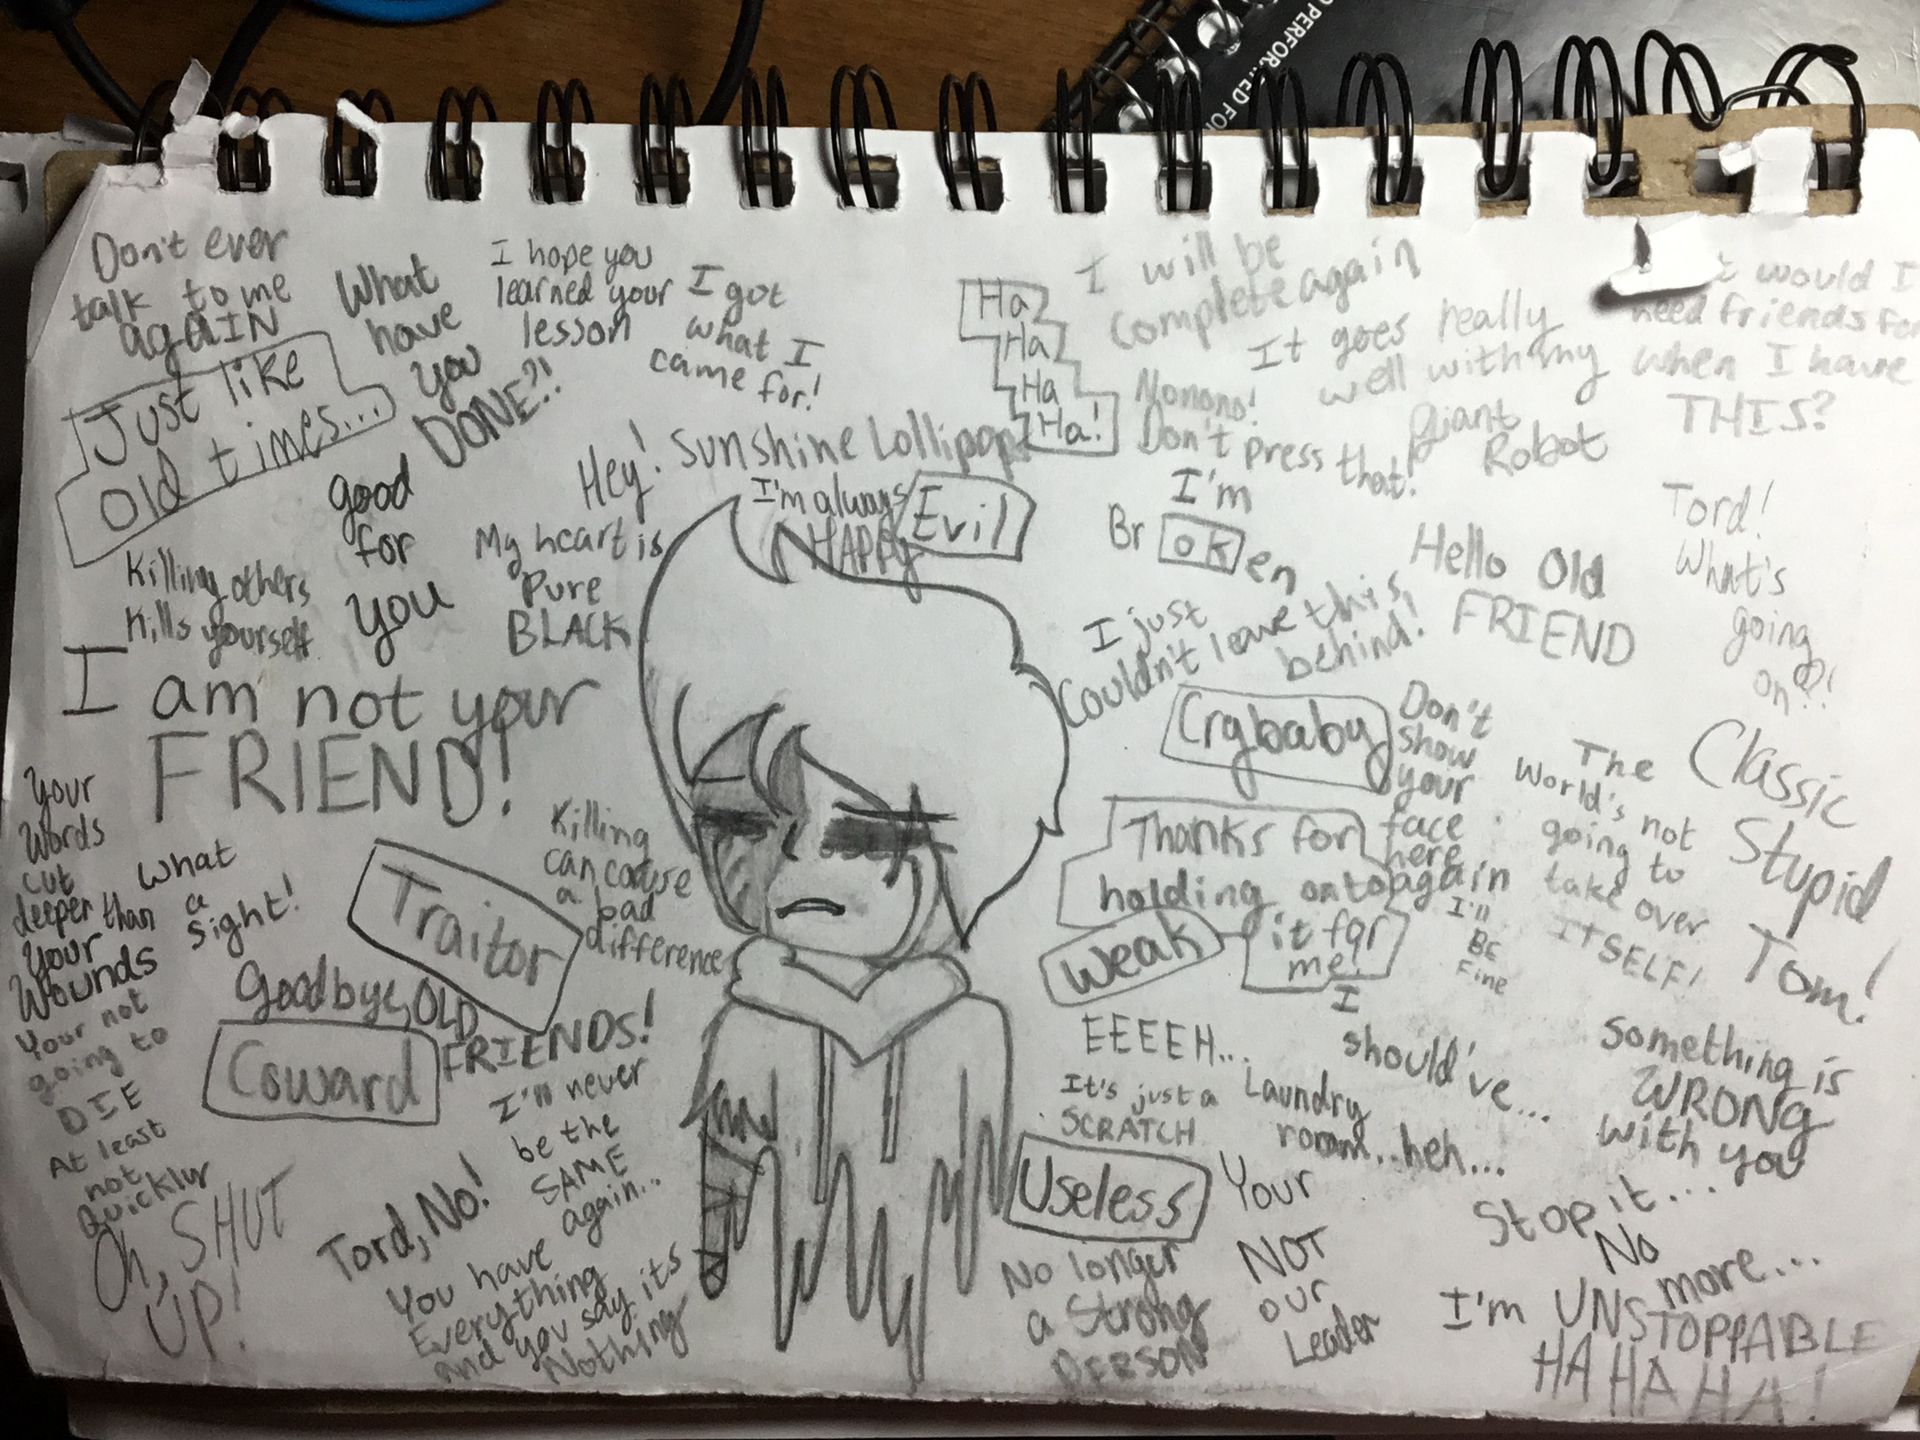 O PERFOR...ED FO
Don't ever
talk to me
agaIN
What
have
you
DONE?!
I hope you
learned your
lesson
I got
what I
came for!
Ha
Ha
Ha
Ha!
I will be
complete again
It goes really
well with my
giant
Robot
t would I
need friends for
when I have
THIS?
Just like
old times...
good
for
you
Hey!
Sunshine Lollipop
I'm always
HAPPY
Evil
Nonono!
Don't press that!
I'm
Br ok en
Tord!
What's
going
on?!
Killing others
Kills yourself
My heart is
Pure
BLACK
Hello Old
FRIEND
I just
Couldn't leave this
behind!
I am not your
FRIEND!
Crybaby
Don't
show
your
face
here
again
The
world's not
going to
take over
ITSELF!
Classic
Stupid
Tom!
Your
words
cut
deeper than
your
wounds
What
a
sight!
Traitor
Killing
can cause
a bad
difference
Thanks for
holding onto
it for
me!
Weak
I'll
BE
Fine
Goodbye, OLD
FRIENDS!
Coward
Your not
going to
DIE
At least
not
Quickly
I'll never
be the
SAME
again...
EEEEH...
It's just a
SCRATCH
I
should've...
Laundry
room...heh...
Something is
WRONG
with you
Useless
Your
NOT
our
Leader
Oh, SHUT
UP!
Tord, No!
You have
Everything
and you say its
Nothing
No longer
a Strong
PERSON
Stop it....
No
more...
I'm UNSTOPPABLE
HA HA HA!